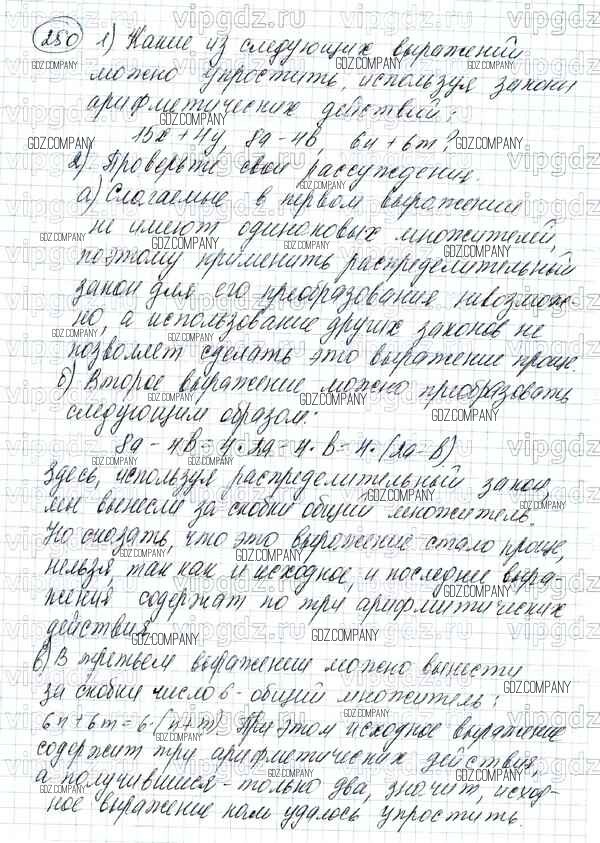 280 1) Какие из следующих выражений
можно упростить, используя законы
арифметических действий:
15x + 4y, 8a - 4b, 6n + 6m?
2). Проверьте свои рассуждения.
а) Слагаемые в первом выражении
не имеют одинаковых множителей,
поэтому применить распределительный
закон для его преобразования невозмож-
но, а использование других законов не
позволяет сделать это выражение проще.
б) Второе выражение можно преобразовать
следующим образом:
8a - 4b = 4 · 2a - 4 · b = 4 · (2a - b)
Здесь, используя распределительный закон,
мы вынесли за скобки общий множитель.
Но сказать, что это выражение стало проще,
нельзя, так как и исходное, и последнее выра-
жения содержат по три арифметических
действия.
в) В третьем выражении можно вынести
за скобки число 6 - общий множитель:
6n + 6m = 6 · (n + m) При этом исходное выражение
содержит три арифметических действия,
а получившееся - только два, значит, исход-
ное выражение нам удалось упростить.